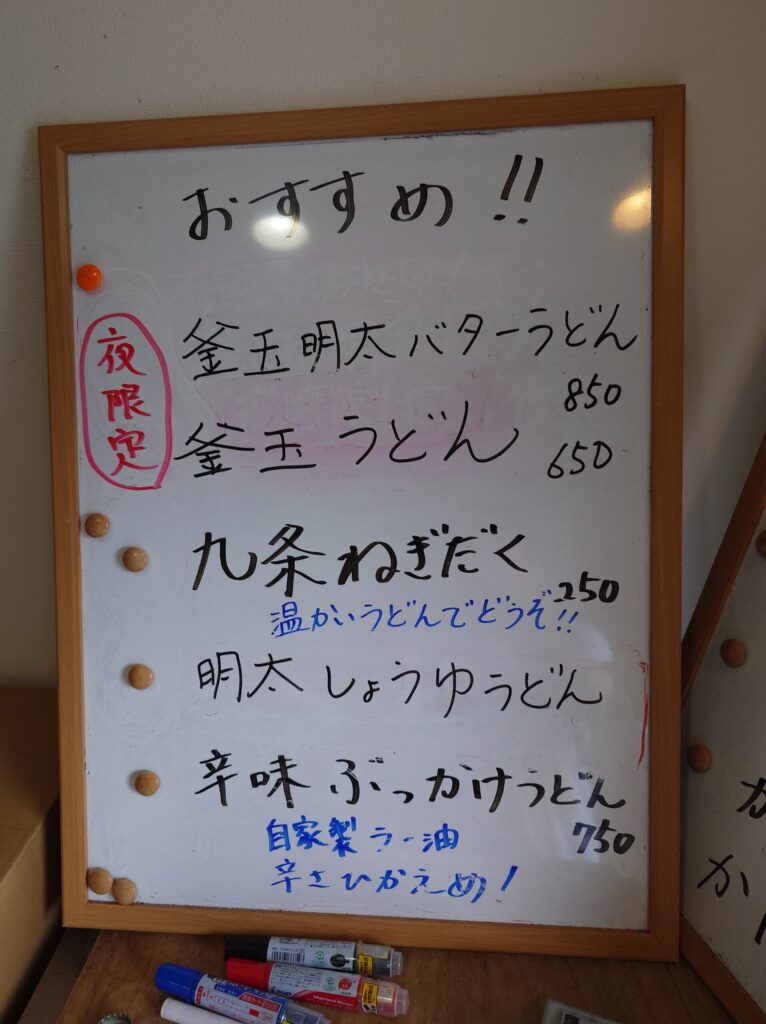 おすすめ!!
夜限定
釜玉明太バターうどん
850
釜玉うどん
650
九条ねぎだく
250
温かいうどんでどうぞ!!
明太しょうゆうどん
辛味ぶっかけうどん
750
自家製ラー油
辛さひかえめ!
か
か